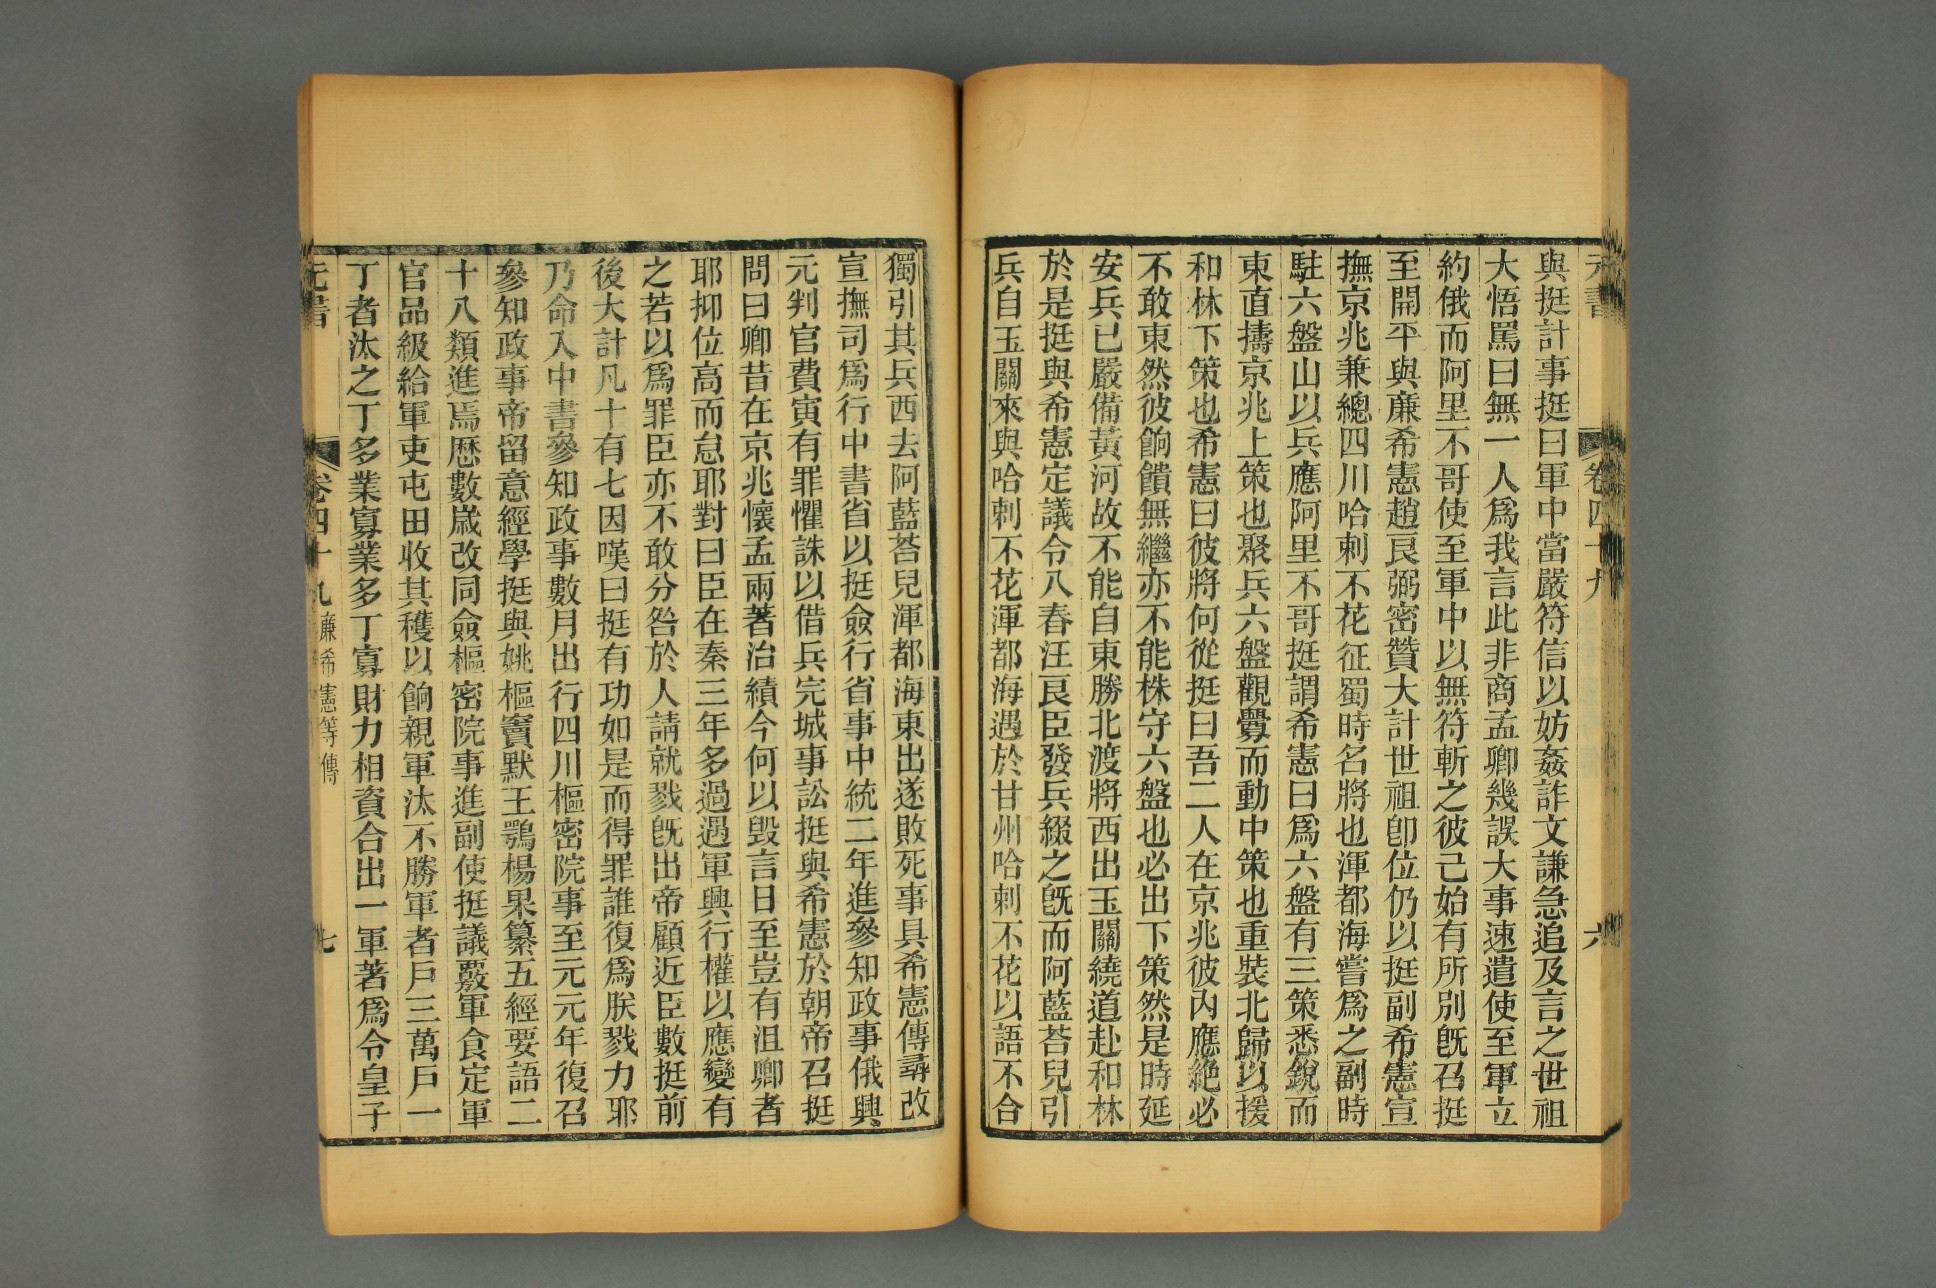 元書
卷四十九
六
與挺計事挺曰軍中當嚴符信以妨姦詐文謙急追及言之世祖
大悟罵曰無一人爲我言此非商孟卿幾誤大事速遣使至軍立
約俄而阿里不哥使至軍中以無符斬之彼己始有所別旣召挺
至開平與廉希憲趙良弼密贊大計世祖卽位仍以挺副希憲宣
撫京兆兼總四川哈剌不花征蜀時名將也渾都海嘗爲之副時
駐六盤山以兵應阿里不哥挺謂希憲曰爲六盤有三策悉銳而
東直擣京兆上策也聚兵六盤觀釁而動中策也重裝北歸以援
和林下策也希憲曰彼將何從挺曰吾二人在京兆彼內應絶必
不敢東然彼餉饋無繼亦不能株守六盤也必出下策然是時延
安兵已嚴備黃河故不能自東勝北渡將西出玉關繞道赴和林
於是挺與希憲定議令八春汪良臣發兵綴之旣而阿藍荅兒引
兵自玉關來與哈剌不花渾都海遇於甘州哈剌不花以語不合
獨引其兵西去阿藍荅兒渾都海東出遂敗死事具希憲傳尋改
宣撫司爲行中書省以挺僉行省事中統二年進參知政事俄興
元判官費寅有罪懼誅以借兵完城事訟挺與希憲於朝帝召挺
問曰卿昔在京兆懷孟兩著治績今何以毀言日至豈有沮卿者
耶抑位高而怠耶對曰臣在秦三年多過遇軍興行權以應變有
之若以爲罪臣亦不敢分咎於人請就戮旣出帝顧近臣數挺前
後大計凡十有七因嘆曰挺有功如是而得罪誰復爲朕戮力耶
乃命入中書參知政事數月出行四川樞密院事至元元年復召
參知政事帝留意經學挺與姚樞竇默王鶚楊果纂五經要語二
十八類進焉厯數歲改同僉樞密院事進副使挺議覈軍食定軍
官品級給軍吏屯田收其穫以餉親軍汰不勝軍者戶三萬戶一
丁者汰之丁多業寡業多丁寡財力相資合出一軍著爲令皇子
元書
卷四十九
廉希憲等傳
七